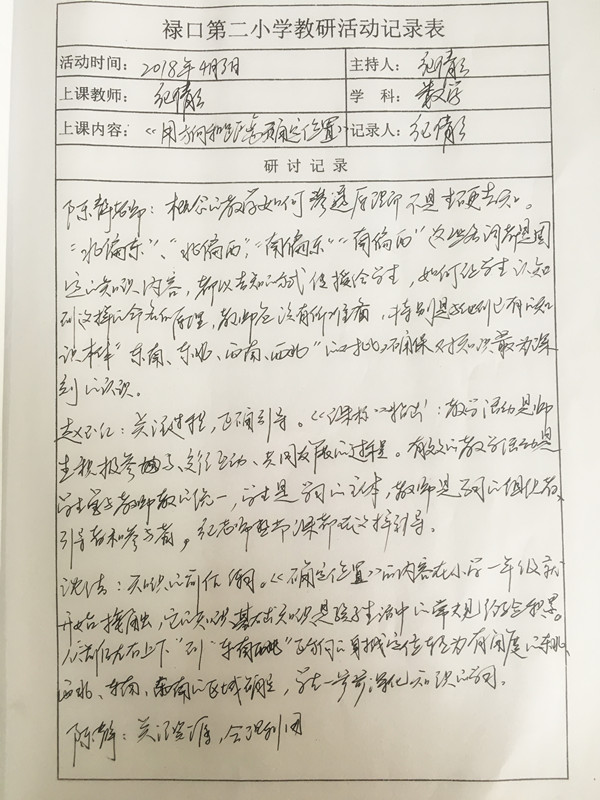 禄口第二小学教研活动记录表
活动时间： 2018年4月3日 主持人： 纪倩
上课教师： 纪倩 学 科： 数学
上课内容：《用方向和距离确定位置》 记录人： 纪倩
研讨记录
陈静老师：概念的教学如何渗透原理而不是生硬告知。
“北偏东”、“北偏西”、“南偏东”“南偏西”这些名词都是固
定的知识内容，都以告知的方式传授给学生，如何让学生认知
到这样的命名的原理，教师应该有所准备，特别是找到已有的知
识“东南、东北、西南、西北”的挑战确保对知识最为深
刻的认识。
赵玉红：关注过程，正确引导。《课标》指出：教学活动是师
生积极参与、交往互动、共同发展的过程。有效的教学活动是
学生学与教师教的统一，学生是学习的主体，教师是学习的组织者、
引导者和参与者，纪老师整节课都在这样引导。
沈洁：知识的前伸后。《确定位置》的内容在小学一年级就
开始接触，它的知识基础知识是孩子生活中的常见经验积累。
从左右上下”到“东南西北”方向的区域定位转为有角度的东北、
西北、东南、西南的区域确定，学生一步步深化知识的学习。
陈静：关注资源，合理利用